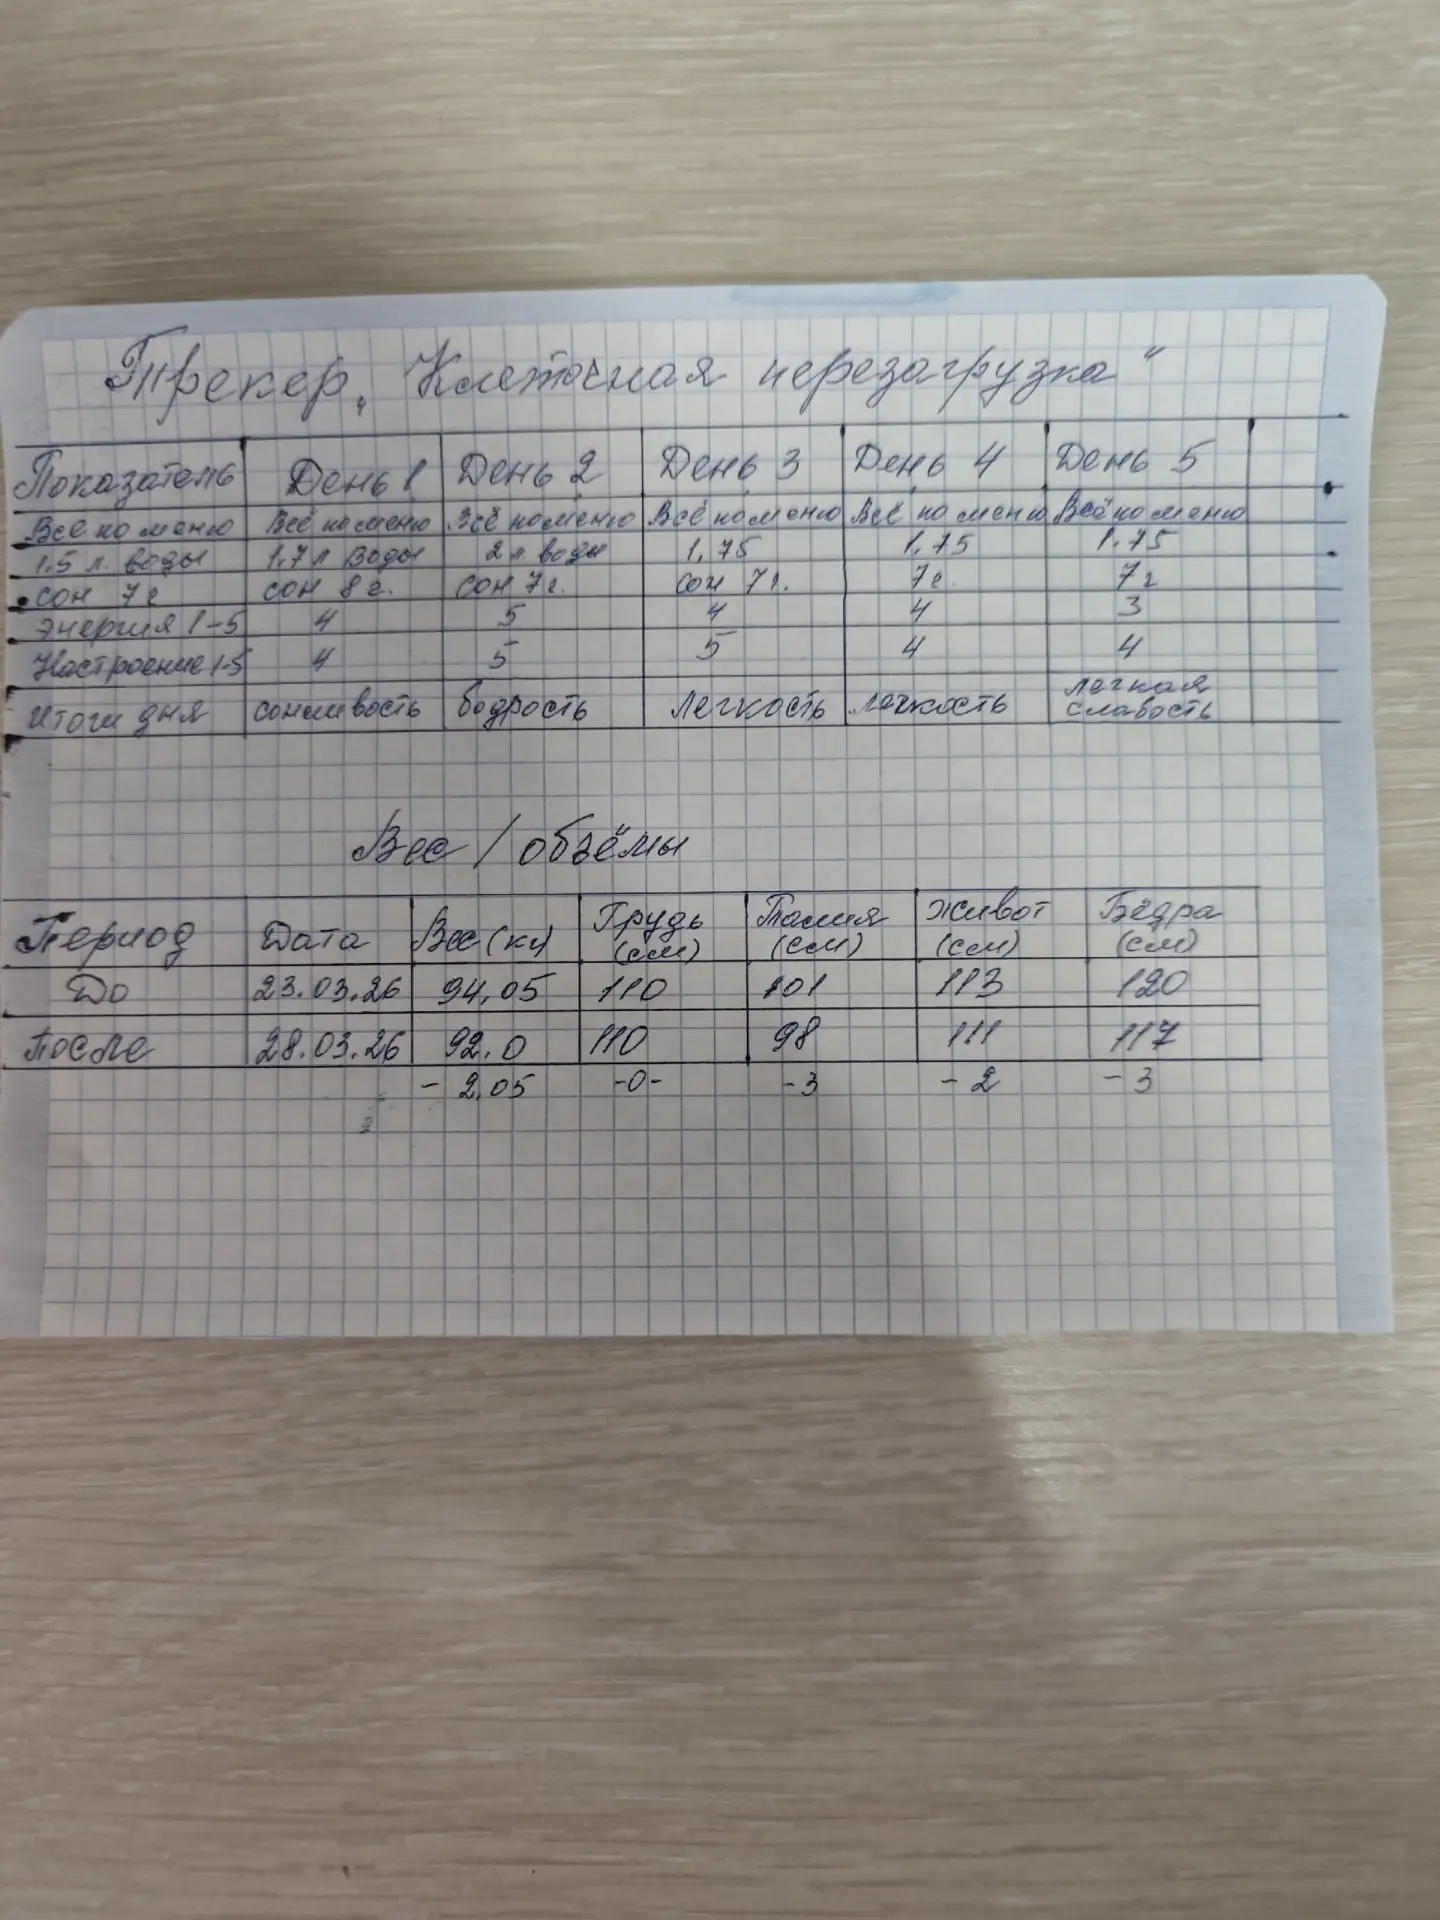 Трекер „Клеточная перезагрузка"
Показатель День 1 День 2 День 3 День 4 День 5
Всё по меню Всё по меню Всё по меню Всё по меню Всё по меню Всё по меню
1.5 л. воды 1.7 л воды 2 л. воды 1,75 1,75 1.75
сон 7 г сон 8 г. сон 7 г. сон 7 г. 7 г. 7 г
Энергия 1-5 4 5 4 4 3
Настроение 1-5 4 5 5 4 4
Итоги дня сонливость бодрость лёгкость лёгкость лёгкая
слабость
Вес / объёмы
Период Дата Вес (кг) Грудь Талия Живот Бёдра
(см) (см) (см) (см)
До 23.03.26 94,05 110 101 113 120
После 28.03.26 92.0 110 98 111 117
- 2,05 -0- -3 - 2 - 3